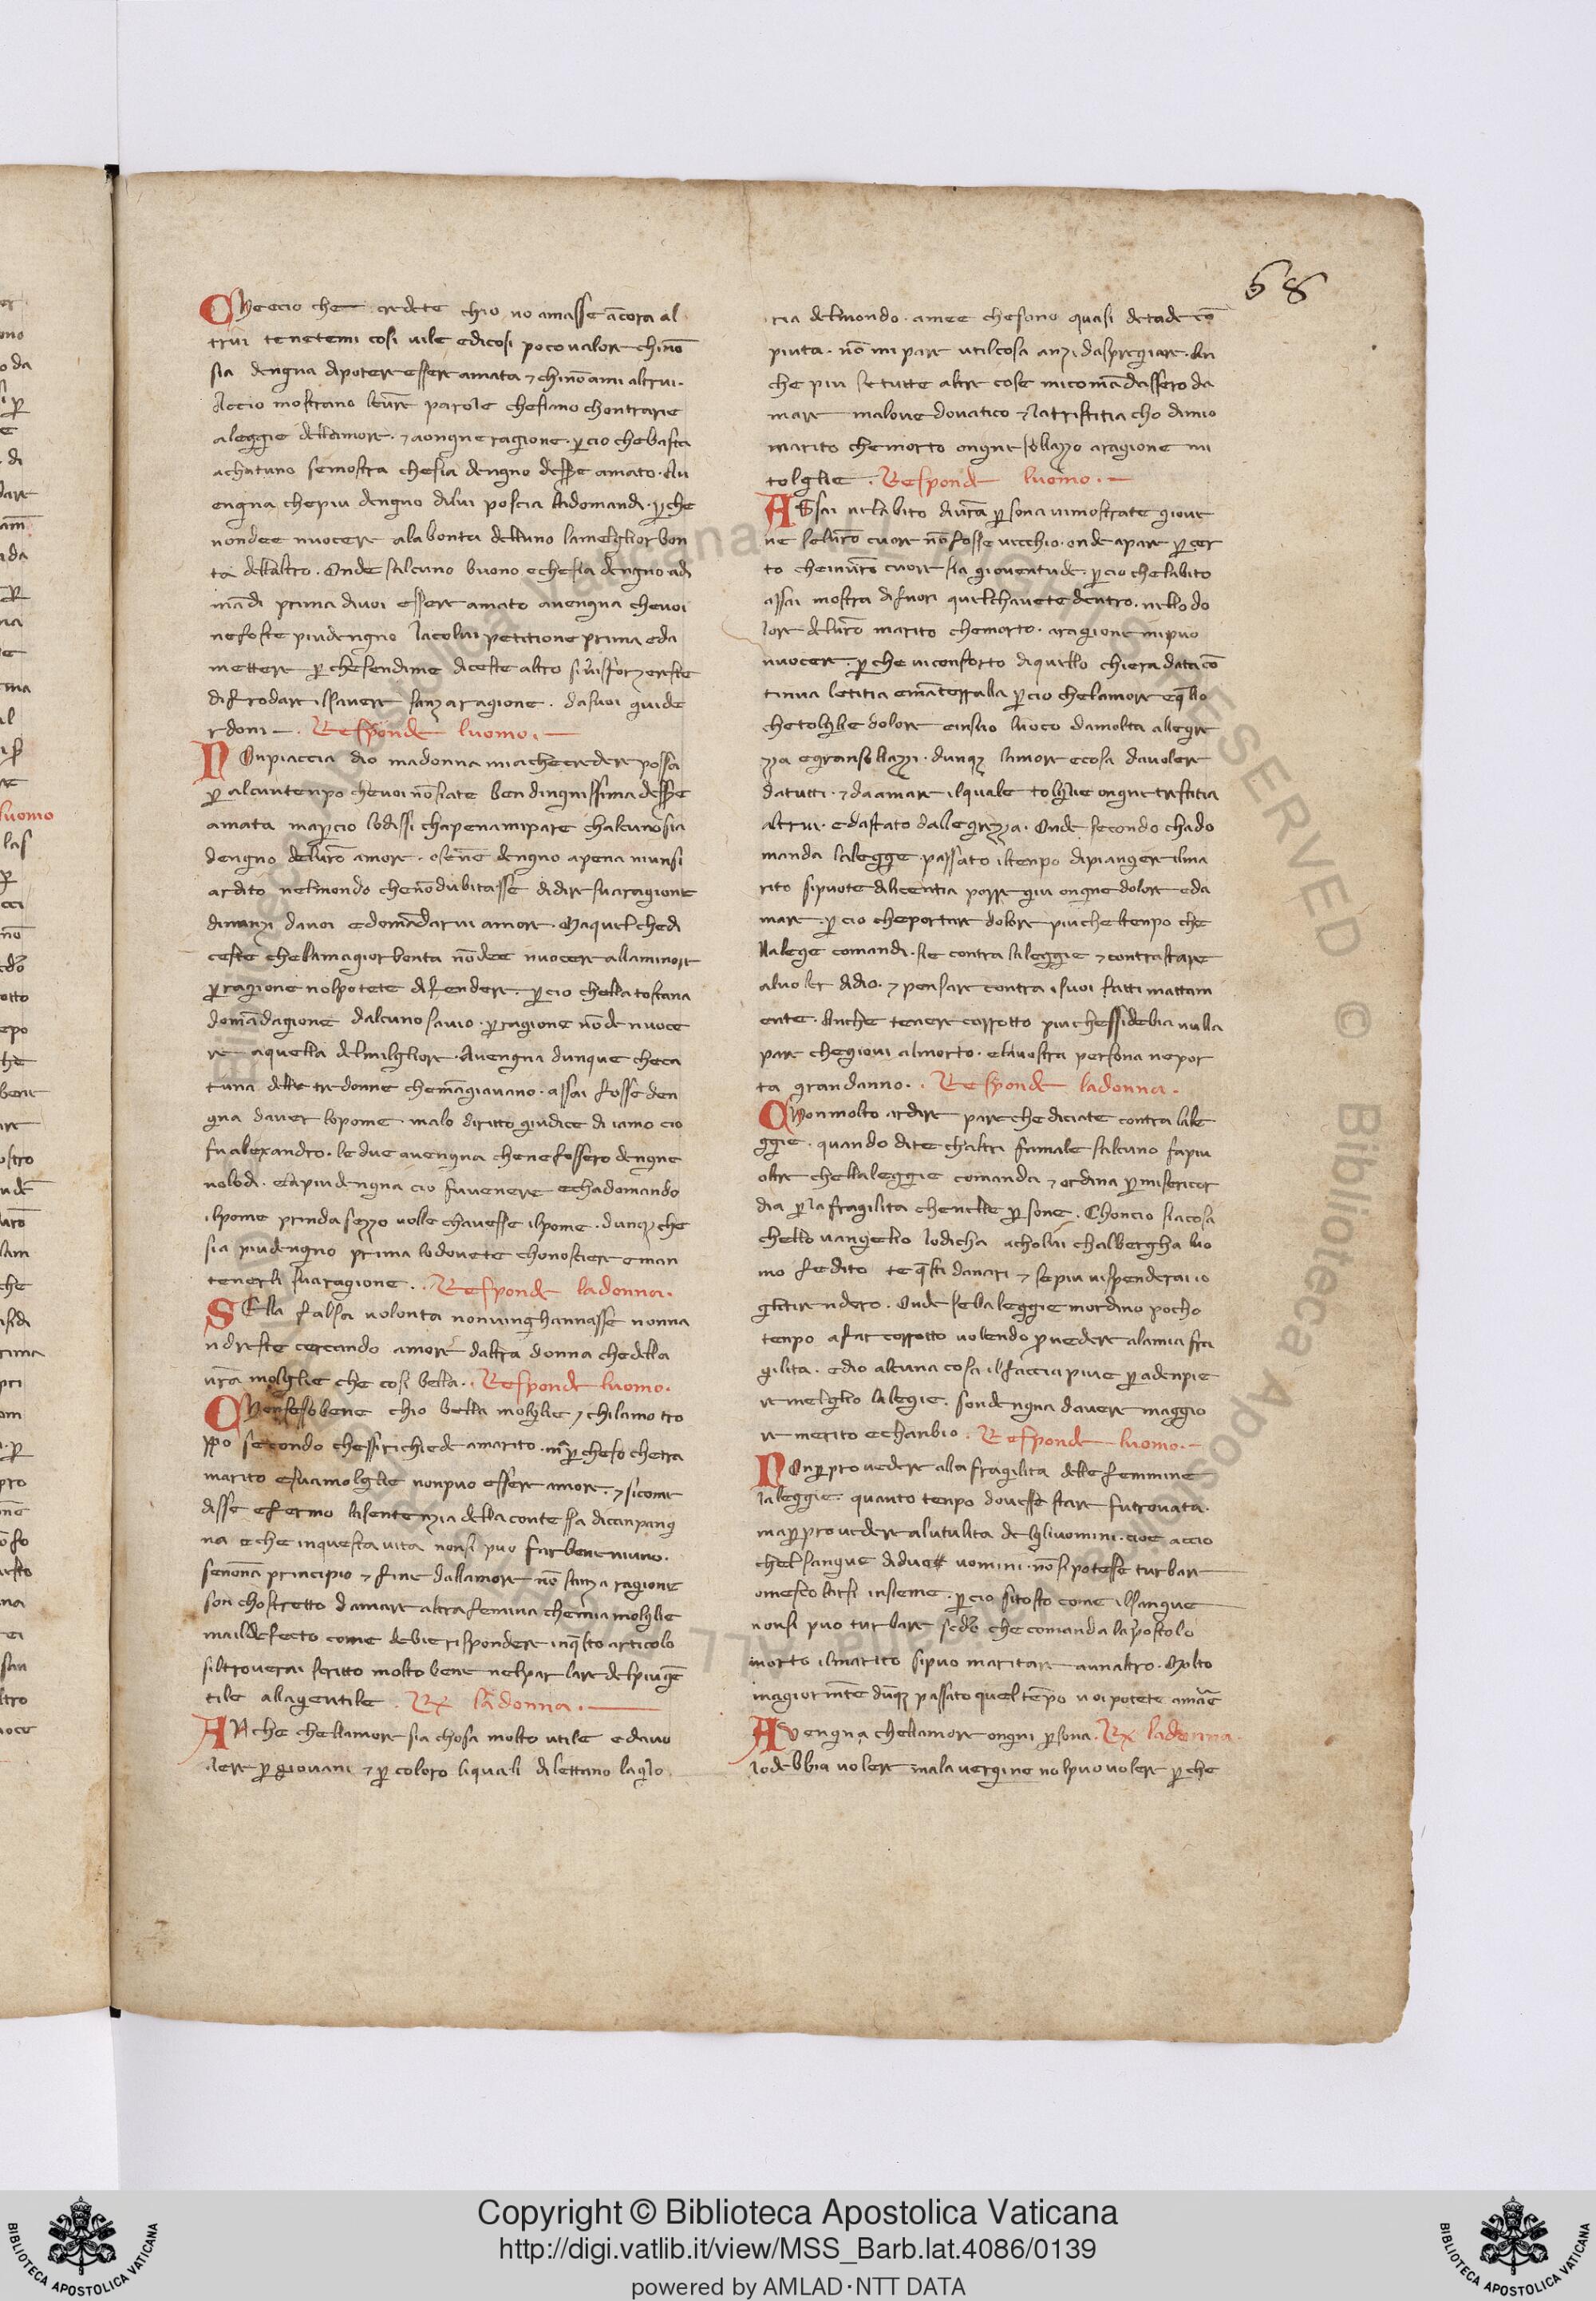 68
CHeccio che credete chio no amasse ãcora al
trui tenetemi cosi uile edicosi pocoualor chinõ
sia dengna dpotere essere amata ⁊ chinõ ami altrui.
Accio mostrano le ur̃e parole chesiano chontrarie
aleggie dellamore. ⁊ aongne ragione. ꝑcio chebasta
achatuno semostra chesia dengno desse amato. Au
engna chepiu dengno dilui poscia ladomandi. ꝑche
nondee nuocere ala bonta delluno lamelglior bon
ta dellaltro. Onde salcuno buono echesia dengno adi
mãdi prima diuoi essere amato auengna cheuoi
nefoste piudengno lacolui petitione prima eda
mettere ꝑ chesendime diceste altro si uisforzereste
difrodare issauere sanza ragione. dasuoi guide
rdoni. Responde luomo.
NOnpiaccia dio madonna mia checredere possa
ꝑ alcuntenpo cheuoi nõsiate ben dingnissima desse
amata maꝑcio lodissi chapena mipare chalcuno sia
dengno deluro amore. osene dengno apena niunsi
ardito nelmondo chenõdubitasse didire suaragione
dinanzi dauoi edomãdarui amore. Maquel chedi
ceste chellamagior bonta nõdee nuocere allaminore
ꝑ ragione nolpotete difendere. ꝑcio chella tostana
domãdagione dalcuno sauio. ꝑ ragione nõde nuoce
re aquella delmilgliore. Auengna dunque checa
tuna delle tre donne chemãgiauano. assai fosse den
gna dauer lopome. malo diritto giudice di iamo cio
fu alexandro. le due auengna chene fossero dengne
nolodi. ela piudengna cio fuuenere echadomando
ilpome prinda sezzo uolle chauesse ilpome. dunqz che
sia piudengno prima lodouete chonosciere eman
tenerli suaragione. Responde ladonna.
SElla falsa uolonta nonuinghannasse nonna
ndreste cercando amore daltra donna chedella
ur̃a molglie che cosi bella. Responde luomo.
COnfesobene chio bella molglie ⁊ chilamo tro
ppo secondo chessirichiede amarito. ma ꝑ cheso chetra
marito esuamolglie nonpuo essere amore. ⁊ sicome
disse efermo lasentenzia della contessa dicanpangi
na eche inquesta uita nonsi puo farbene niuno.
senonã principio ⁊ fine dallamore nõ sanza ragione
son chostretto damare altra femina chemia molglie
mailddefecto come debie rispondere inqsto articolo
siltrouerai scritto molto bene nelparlare delpiugẽ
tile allagentile. Rx ladonna.
ANche chellamore sia chosa molto utile edauo
lere ꝑ giouani ⁊ ꝑ coloro liquali dilettano laglo
ria delmondo. amee chesono quasi detade cõ
piuta. nõ mi pare utilcosa anzi daspregiare. An
che piu se tutte altre cose micomãdassero da
mare malouedouatico ⁊ latristitia cho dimio
marito chemorto ongne sollazzo aragione mi
tolglie. Responde luomo.
ASsai nelabito diur̃a ꝑsona uimostrate gioue
ne seluro cuore nõ fosse uecchio. onde apare ꝑ cer
to cheinuro cuore sia giouentude. ꝑcio chelabito
assai mostra difuori quelchauete dentro. nello do
lore deluro marito chemorto. aragione mipuo
nuocere. ꝑ che uiconforto diquello chiera data cõ
tinua letitia emãteralla ꝑcio chelamore eq̃llo
chetolglie dolore einsuo luoco damolta allegre
zza egransollazzi. dunqz lamore ecosa dauolere
datutti. ⁊ daamare ilquale tolglie ongne tristitia
altrui. edastato dallegrezza. Onde secondo chado
manda lalegge. passato iltenpo dipianger ilma
rito sipuote dilicentia porre giu ongne dolore eda
mare. ꝑ cio cheportare dolore piu cheltenpo che
llalege comandi. sie contra laleggie ⁊ contrastare
aluoler didio. ⁊ pensare contra isuoi fatti mattam
ente. Anche tenere corrotto piuchessidebia nulla
pare chegioui almorto. elauostra persona nepor
ta grandanno. Responde ladonna.
COnmolto ardire pare chediciate contra lale
ggie. quando dite chaltri famale salcuno fapiu
oltre chellaleggie comanda ⁊ ordina ꝑ misericor
dia ꝑ la fragilita chenelle ꝑsone. Choncio siacosa
chello uangelio lodicha acholui chalbergha luo
mo fedito te q̃sti danari ⁊ sepiu uispenderai io
glitirendero. Onde sella leggie mordino pocho
tenpo afar corrotto uolendo ꝓuedere alamia fra
gilita. edio alcuna cosa ilfaccia piue ꝑ adenpie
re melglio lalegie. sondengna dauere maggio
re merito echanbio. Responde luomo.
NOnꝑ prouedere alla fragilita delle femmine
laleggie. quanto tenpo douesse stare futrouata.
maꝑ prouedere alutulita delgliuomini. cioe accio
chelsangue didue uomini. nõ sipotesse turbare
omescolarsi insieme. ꝑcio sitosto come ilsangue
nonsi puo turbare secõdo che comanda lapostolo
morto ilmarito sipuo maritare aunaltro. Molto
magiormẽte dũqz passato quel tẽpo uoi potete amãe
AVengna chellamore ongni ꝑsona. Rx ladonna.
lodebbia uolere mala uergine nolpuo uolere ꝑche
Copyright © Biblioteca Apostolica Vaticana
http://digi.vatlib.it/view/MSS_Barb.lat.4086/0139
powered by AMLAD·NTT DATA
BIBLIOTECA APOSTOLICA VATICANA
BIBLIOTECA APOSTOLICA VATICANA